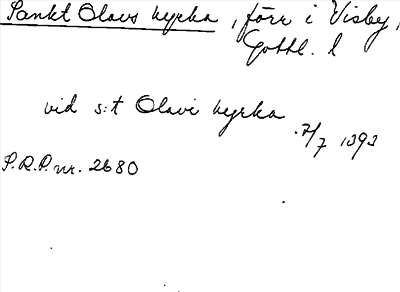 Sankt Olavs kyrka, förr i Visby,
Gottl. l
vid s:t Olavi kyrka
7/7 1393
S.R.P. nr. 2680